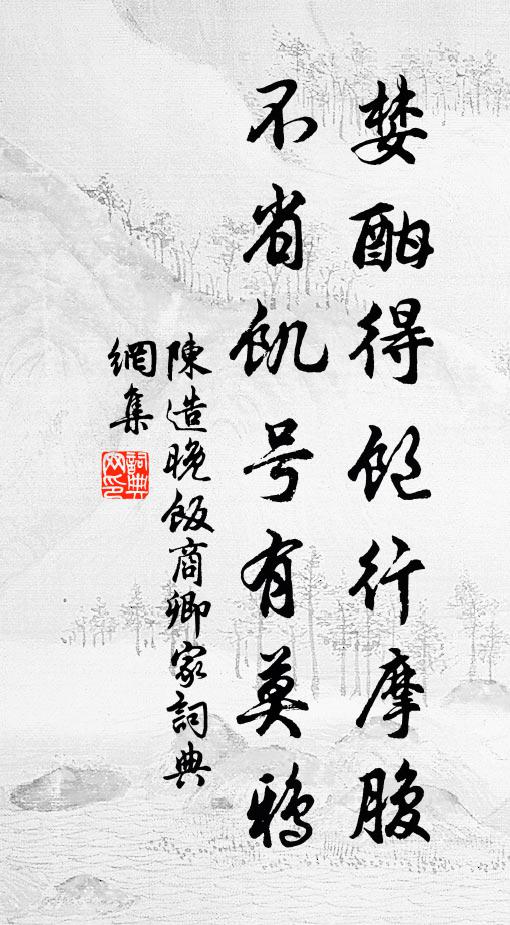 婪酣得饱行摩腹
不省飢号有莫鴉
陳造晚飯商卿家詞典
網集
詞典
网印